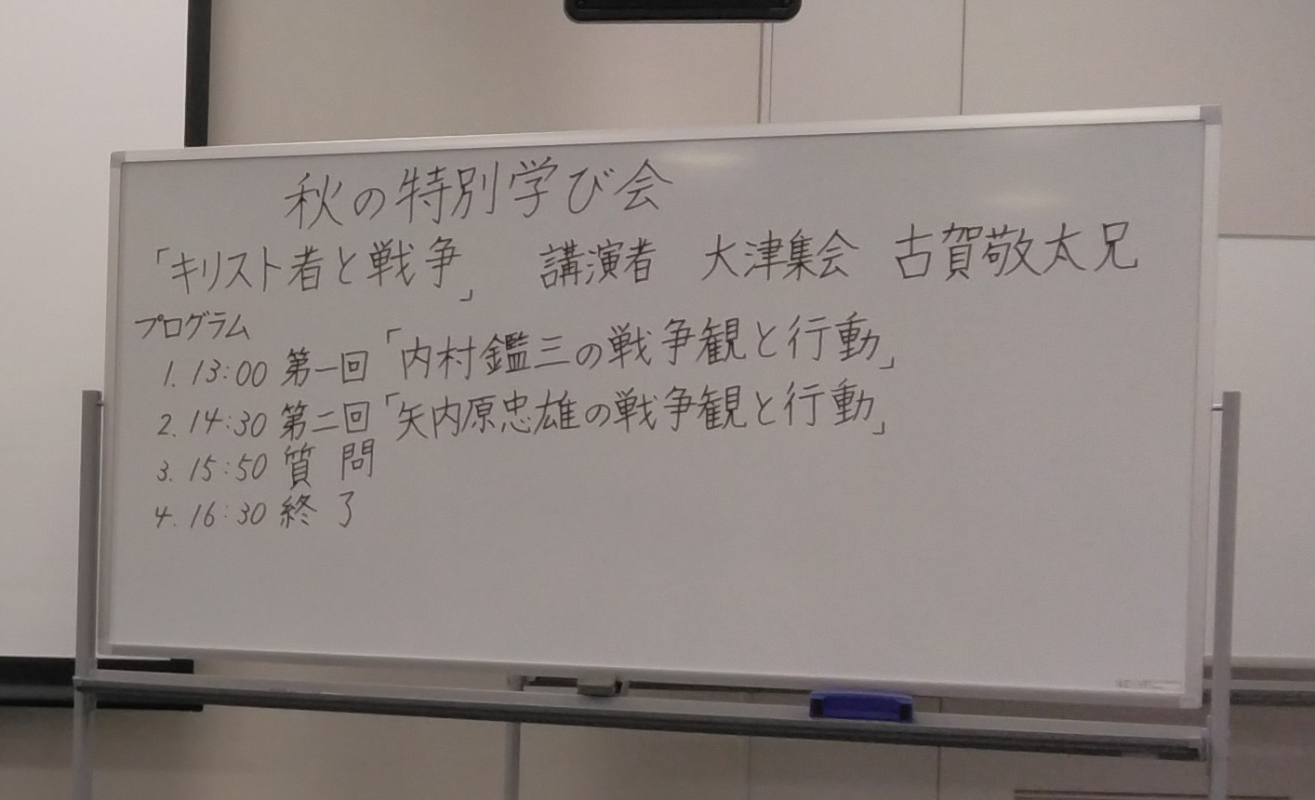 秋の特別学び会
「キリスト者と戦争」 講演者 大津集会 古賀敬太兄
プログラム
1. 13:00 第一回「内村鑑三の戦争観と行動」
2. 14:30 第二回「矢内原忠雄の戦争観と行動」
3. 15:50 質 問
4. 16:30 終 了